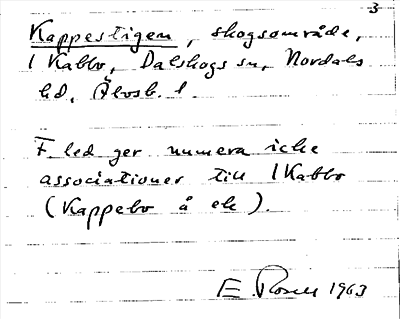 3
Kappestigen, skogsområde,
1 Kabbo, Dalskogs sn, Nordals
hd, Älvsb. l.
F. led ger numera icke
associationer till 1 Kabbo
(Kappebo å ek).
E. 1963